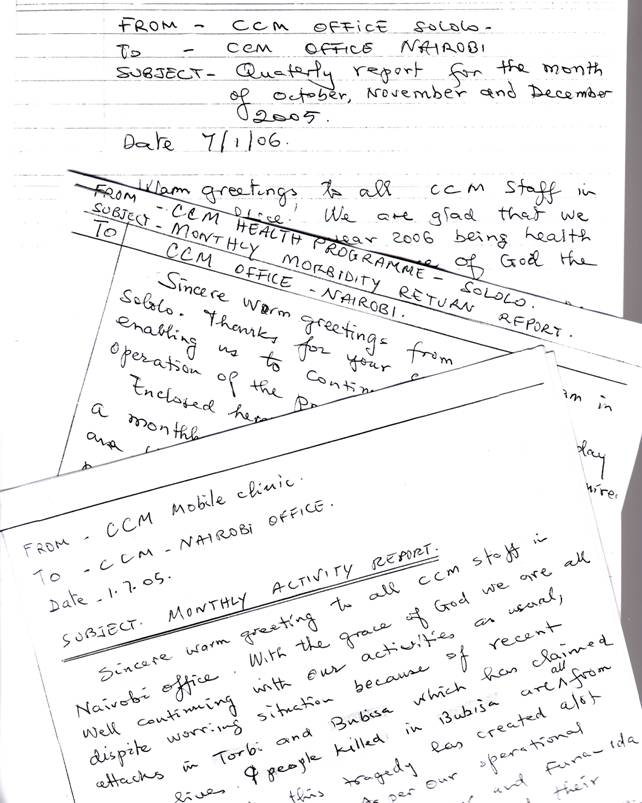 FROM - CCM OFFICE SOLOLO -
To - CCM OFFICE NAIROBI
SUBJECT - Quaterly report for the month
of october, November and December
2005.
Date 7/1/06.
Warm greetings to all CCM Staff in
We are glad that we
year 2006 being health
of God the
FROM - CCM HEALTH PROGRAMME - SOLOLO.
SUBJECT - MONTHLY MORBIDITY RETURN REPORT.
To CCM OFFICE - NAIROBI.
Sincere warm greetings from
Sololo. Thanks for your
enabling us to contin
operation of the
Enclosed her
a monthl
are
in
day
FROM - CCM Mobile clinic.
TO - CCM - NAIROBI OFFICE.
Date - 1.7.05.
SUBJECT. MONTHLY ACTIVITY REPORT.
Sincere warm greeting to all CCM staff in
Nairobi office. With the grace of God we are all
Well continuing with our activities as usual,
dispite worring situation because of recent
attacks in Torbi and Bubisa which has claimed
lives. 9 people killed in Bubisa are all from
this tragedy has created alot
As per our operational
and Funa-ida
their